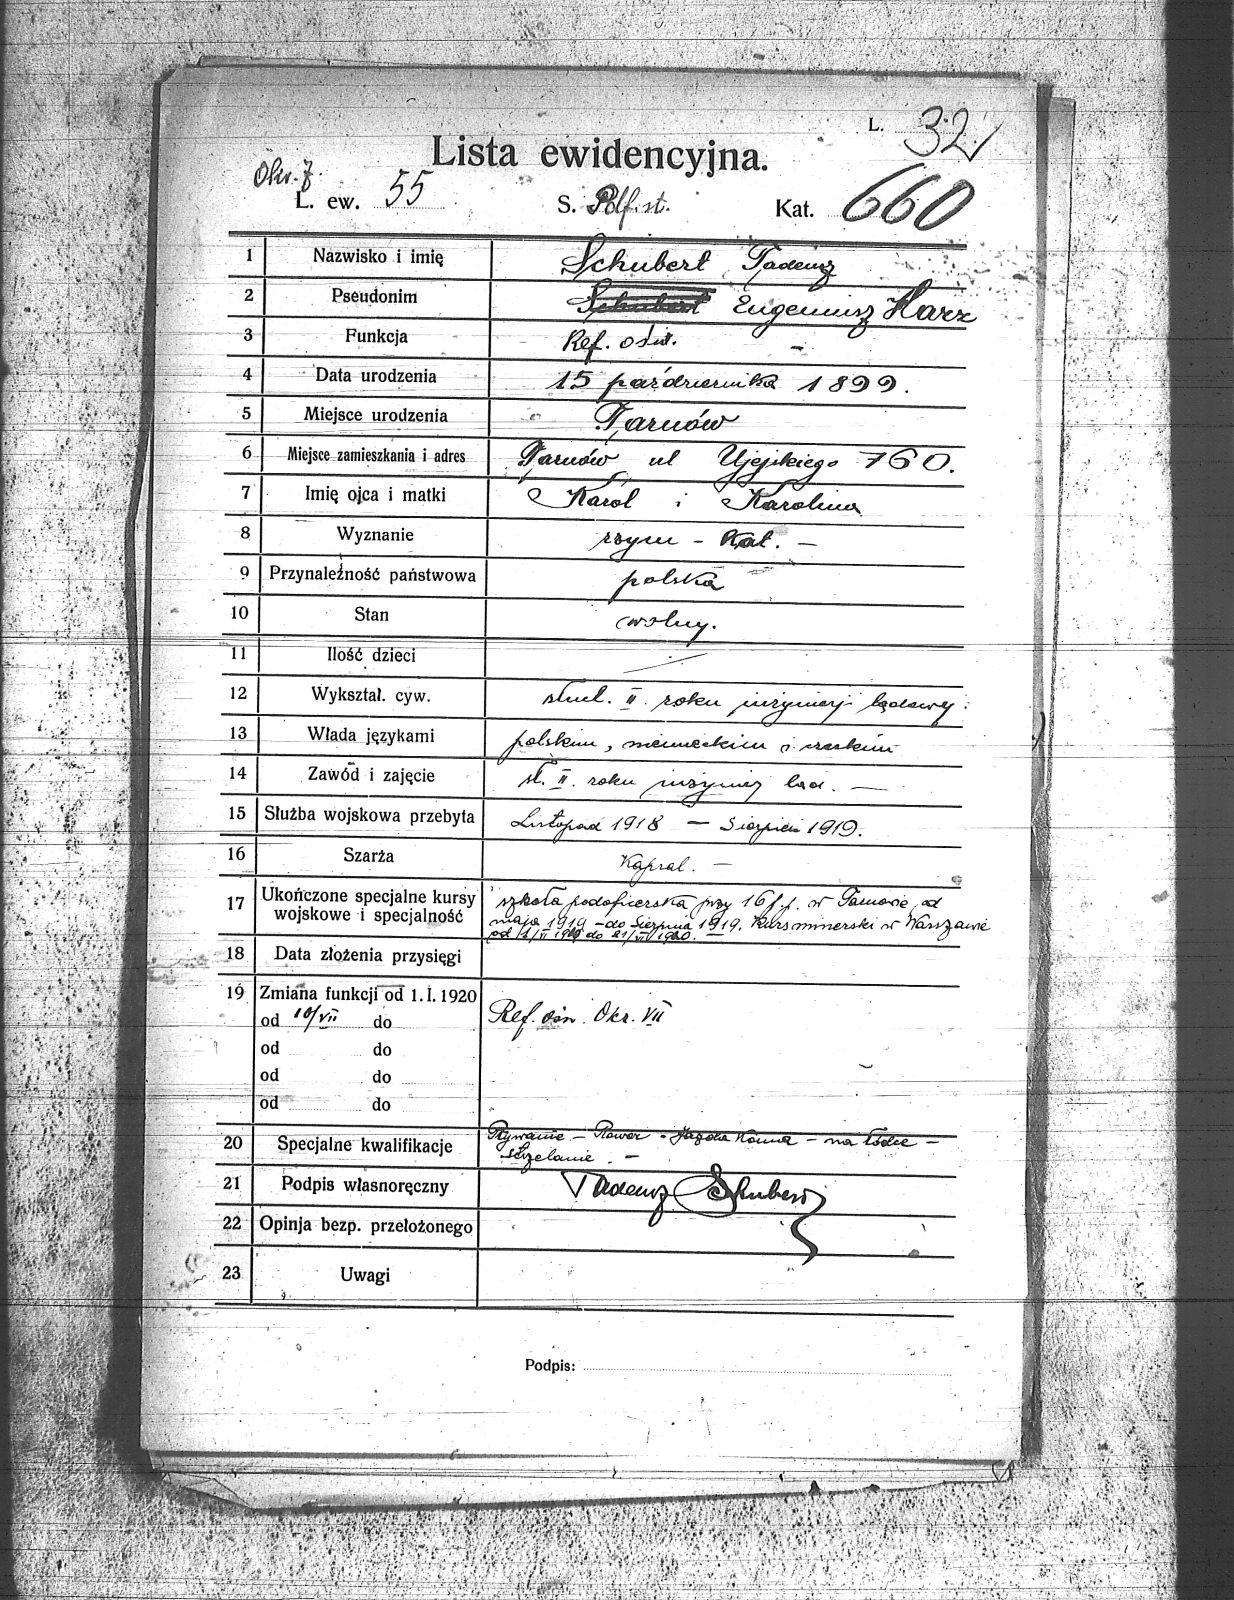 L. 32
Lista ewidencyjna.
Okr. 7.
L. ew. 55 S. Pdf. st. Kat. 660
1 Nazwisko i imię Schubert Tadeusz
2 Pseudonim Schubert Eugeniusz Harz
3 Funkcja Ref. ośw. –
4 Data urodzenia 15 października 1899.
5 Miejsce urodzenia Tarnów
6 Miejsce zamieszkania i adres Tarnów ul Ujejskiego 760.
7 Imię ojca i matki Karol i Karolina
8 Wyznanie rzym – kat. –
9 Przynależność państwowa polska
10 Stan wolny.
11 Ilość dzieci
12 Wykształ. cyw. stud. II. roku inżynierji lądowej.
13 Włada językami polskim, niemieckim i czeskim
14 Zawód i zajęcie st. II. roku inżynierj ląd. –
15 Służba wojskowa przebyta Listopad 1918 – Sierpień 1919.
16 Szarża Kapral. –
17 Ukończone specjalne kursy wojskowe i specjalność szkoła podoficerska przy 16 p.p. w Tarnowie od
maja 1919 – do Sierpnia 1919. Kurs minerski w Warszawie
od 1/VI 1920 do 21/VI 1920. –
18 Data złożenia przysięgi
19 Zmiana funkcji od 1. I. 1920
od 10/VII do Ref. ośw. Okr. VII
od do
od do
od do
20 Specjalne kwalifikacje Pływanie – Rower – Jazda konna – na łódce –
strzelanie. –
21 Podpis własnoręczny Tadeusz Schubert
22 Opinja bezp. przełożonego
23 Uwagi
Podpis: